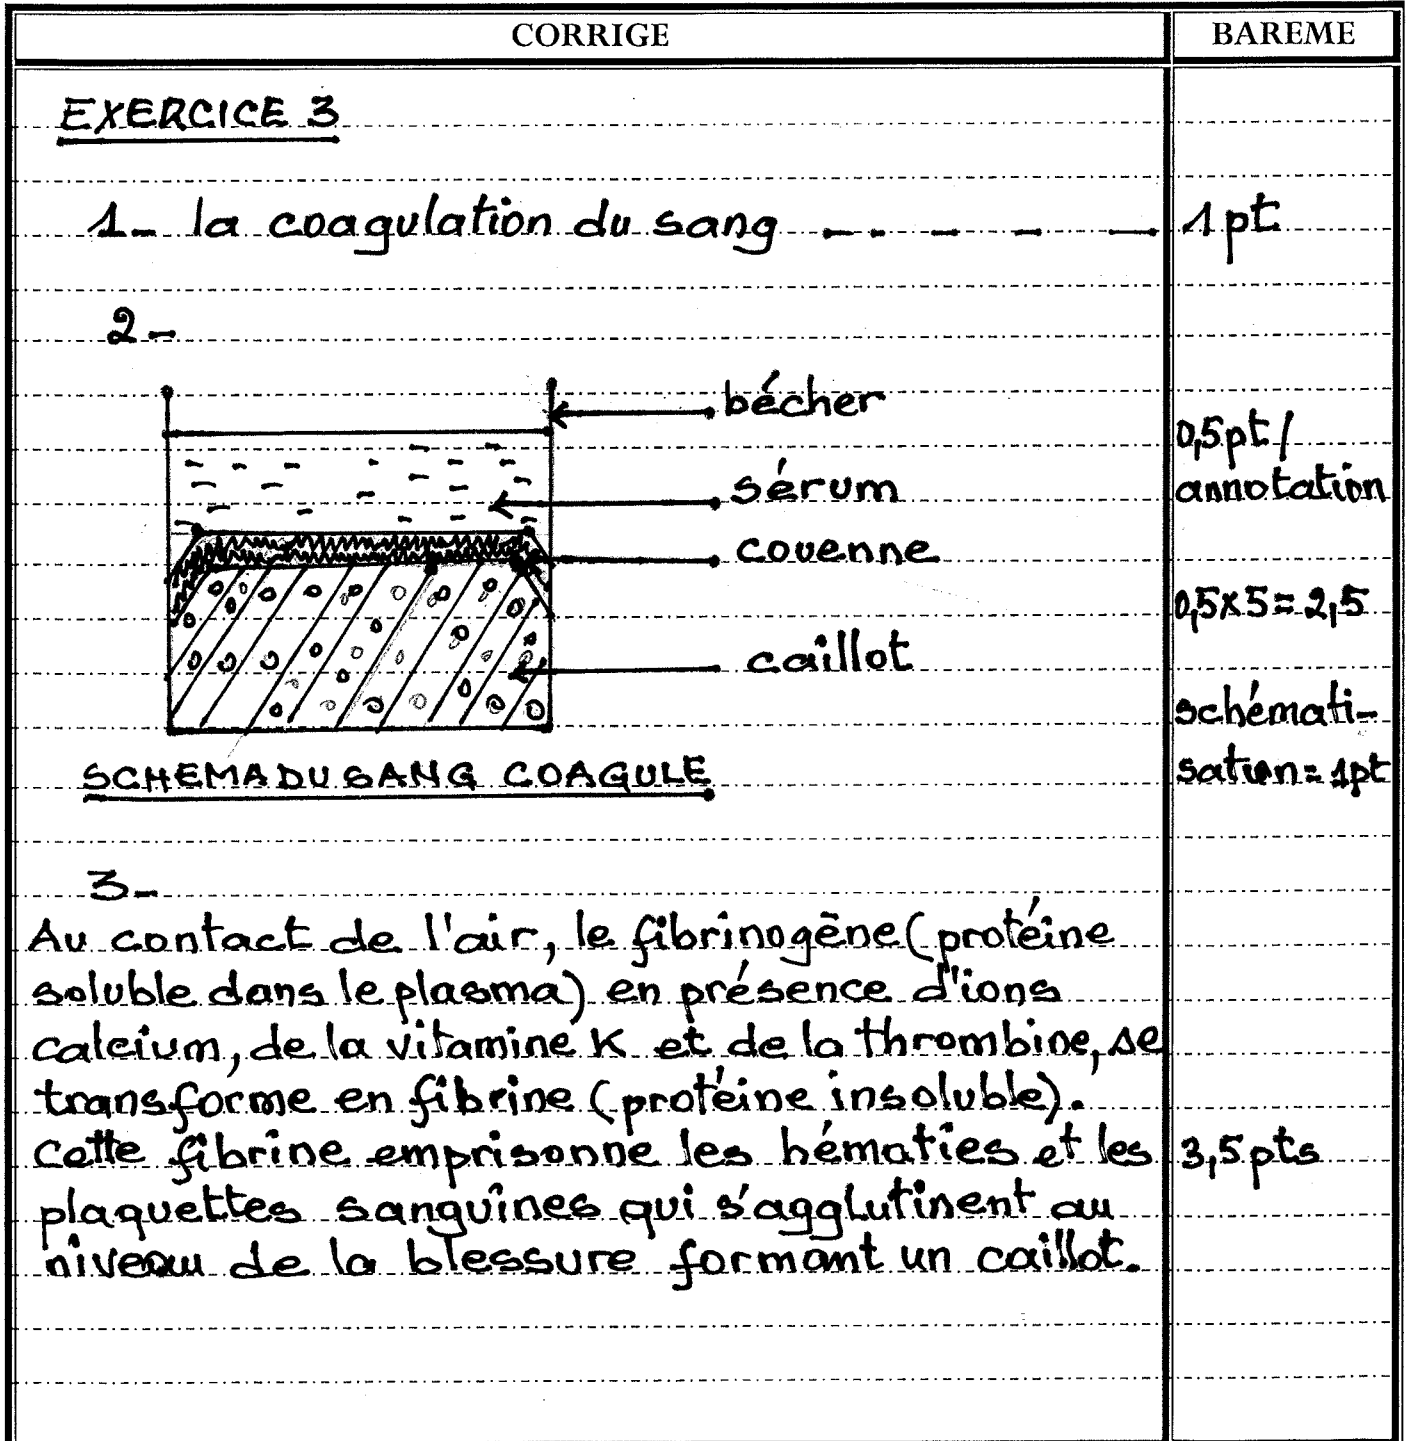 CORRIGE
BAREME
EXERCICE 3
1- la coagulation du sang
1 pt
2-
bécher
sérum
couenne
caillot
0,5pt/
annotation
0,5x5=2,5
schémati-
sation=1pt
SCHEMA DU SANG COAGULE
3-
Au contact de l'air, le fibrinogène (protéine
soluble dans le plasma) en présence d'ions
calcium, de la vitamine K et de la thrombine, se
transforme en fibrine (protéine insoluble).
Cette fibrine emprisonne les hématies et les
3,5pts
plaquettes sanguines qui s'agglutinent au
niveau de la blessure formant un caillot.